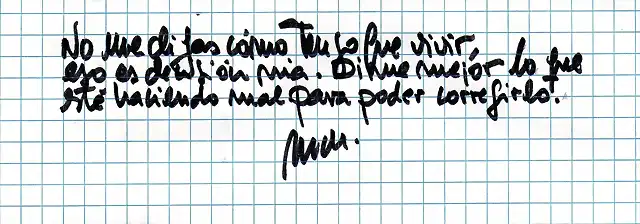 No me digas cómo Tengo que vivir,
eso es decisión mia. Dime mejór lo que
esté haciendo mal para poder corregirlo!